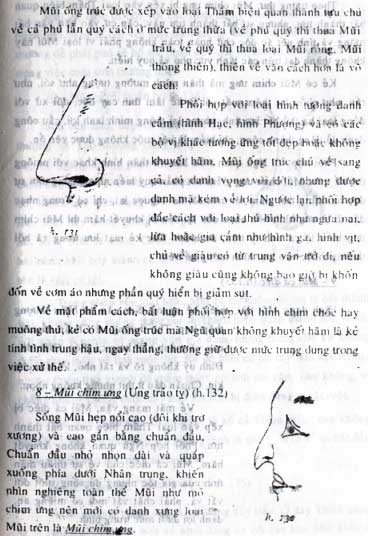 Mũi ống trúc được xếp vào loại Thẩm biện quan thành tựu chủ
về cả phú lẫn quý cách ở mức trung thừa (về phú quý thì thua Mũi
trâu, về quý thì thua loại Mũi rồng, Mũi
thông thiên), thiên về văn cách hơn là võ
cách!
Phối hợp với loại hình tướng danh
cầm (hình Hạc, hình Phượng) và có các
bộ vị khác tương ứng tốt đẹp hoặc không
khuyết hãm, Mũi ống trúc chủ về sang
cả, có danh vọng với đời, nhưng được
danh mà kém về lợi. Ngược lại, phối hợp
đắc cách với loại thú hình như ngựa nai,
lừa hoặc gia cầm như hình gà, hình vịt,
chủ về giàu có từ trung vận trở đi, nếu
không giàu cũng không bao giờ bị khốn
đốn về cơm áo nhưng phần quý hiển bị giảm sút.
h. 131
Về mặt phẩm cách, bất luận phối hợp với hình chim chóc hay
muông thú, kẻ có Mũi ống trúc mà Ngũ quan không khuyết hãm là kẻ
tính tình trung hậu, ngay thẳng, thường giữ được mức trung dung trong
việc xử thế.
8 – Mũi chim ưng (Ưng trảo tỵ) (h.132)
Sống Mũi hẹp nổi cao (đôi khi trơ
xương) và cao gần bằng chuẩn đầu,
Chuẩn đầu nhỏ nhọn dài và quặp
xuống phía dưới Nhân trung, khiến
nhìn nghiêng toàn thể Mũi như mỏ
chim ưng nên mới có danh xưng loại
Mũi trên là Mũi chim ưng.